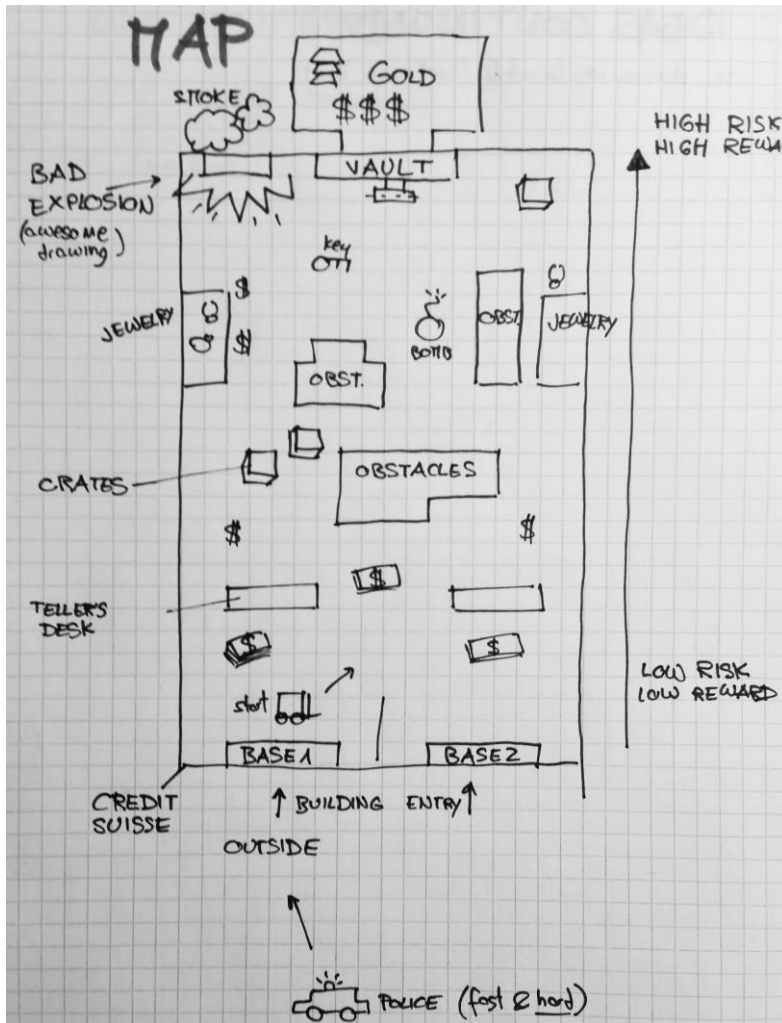 MAP
SMOKE
GOLD
$$$
HIGH RISK
HIGH REWA
BAD
EXPLOSION
(awesome
drawing)
VAULT
key
$
JEWELRY
$
BOMB
OBST.
JEWELRY
OBST.
CRATES
OBSTACLES
$
$
$
TELLER'S
DESK
$
$
LOW RISK
LOW REWARD
start
BASE1
BASE2
CREDIT
SUISSE
BUILDING ENTRY
OUTSIDE
POLICE (fast & hard)